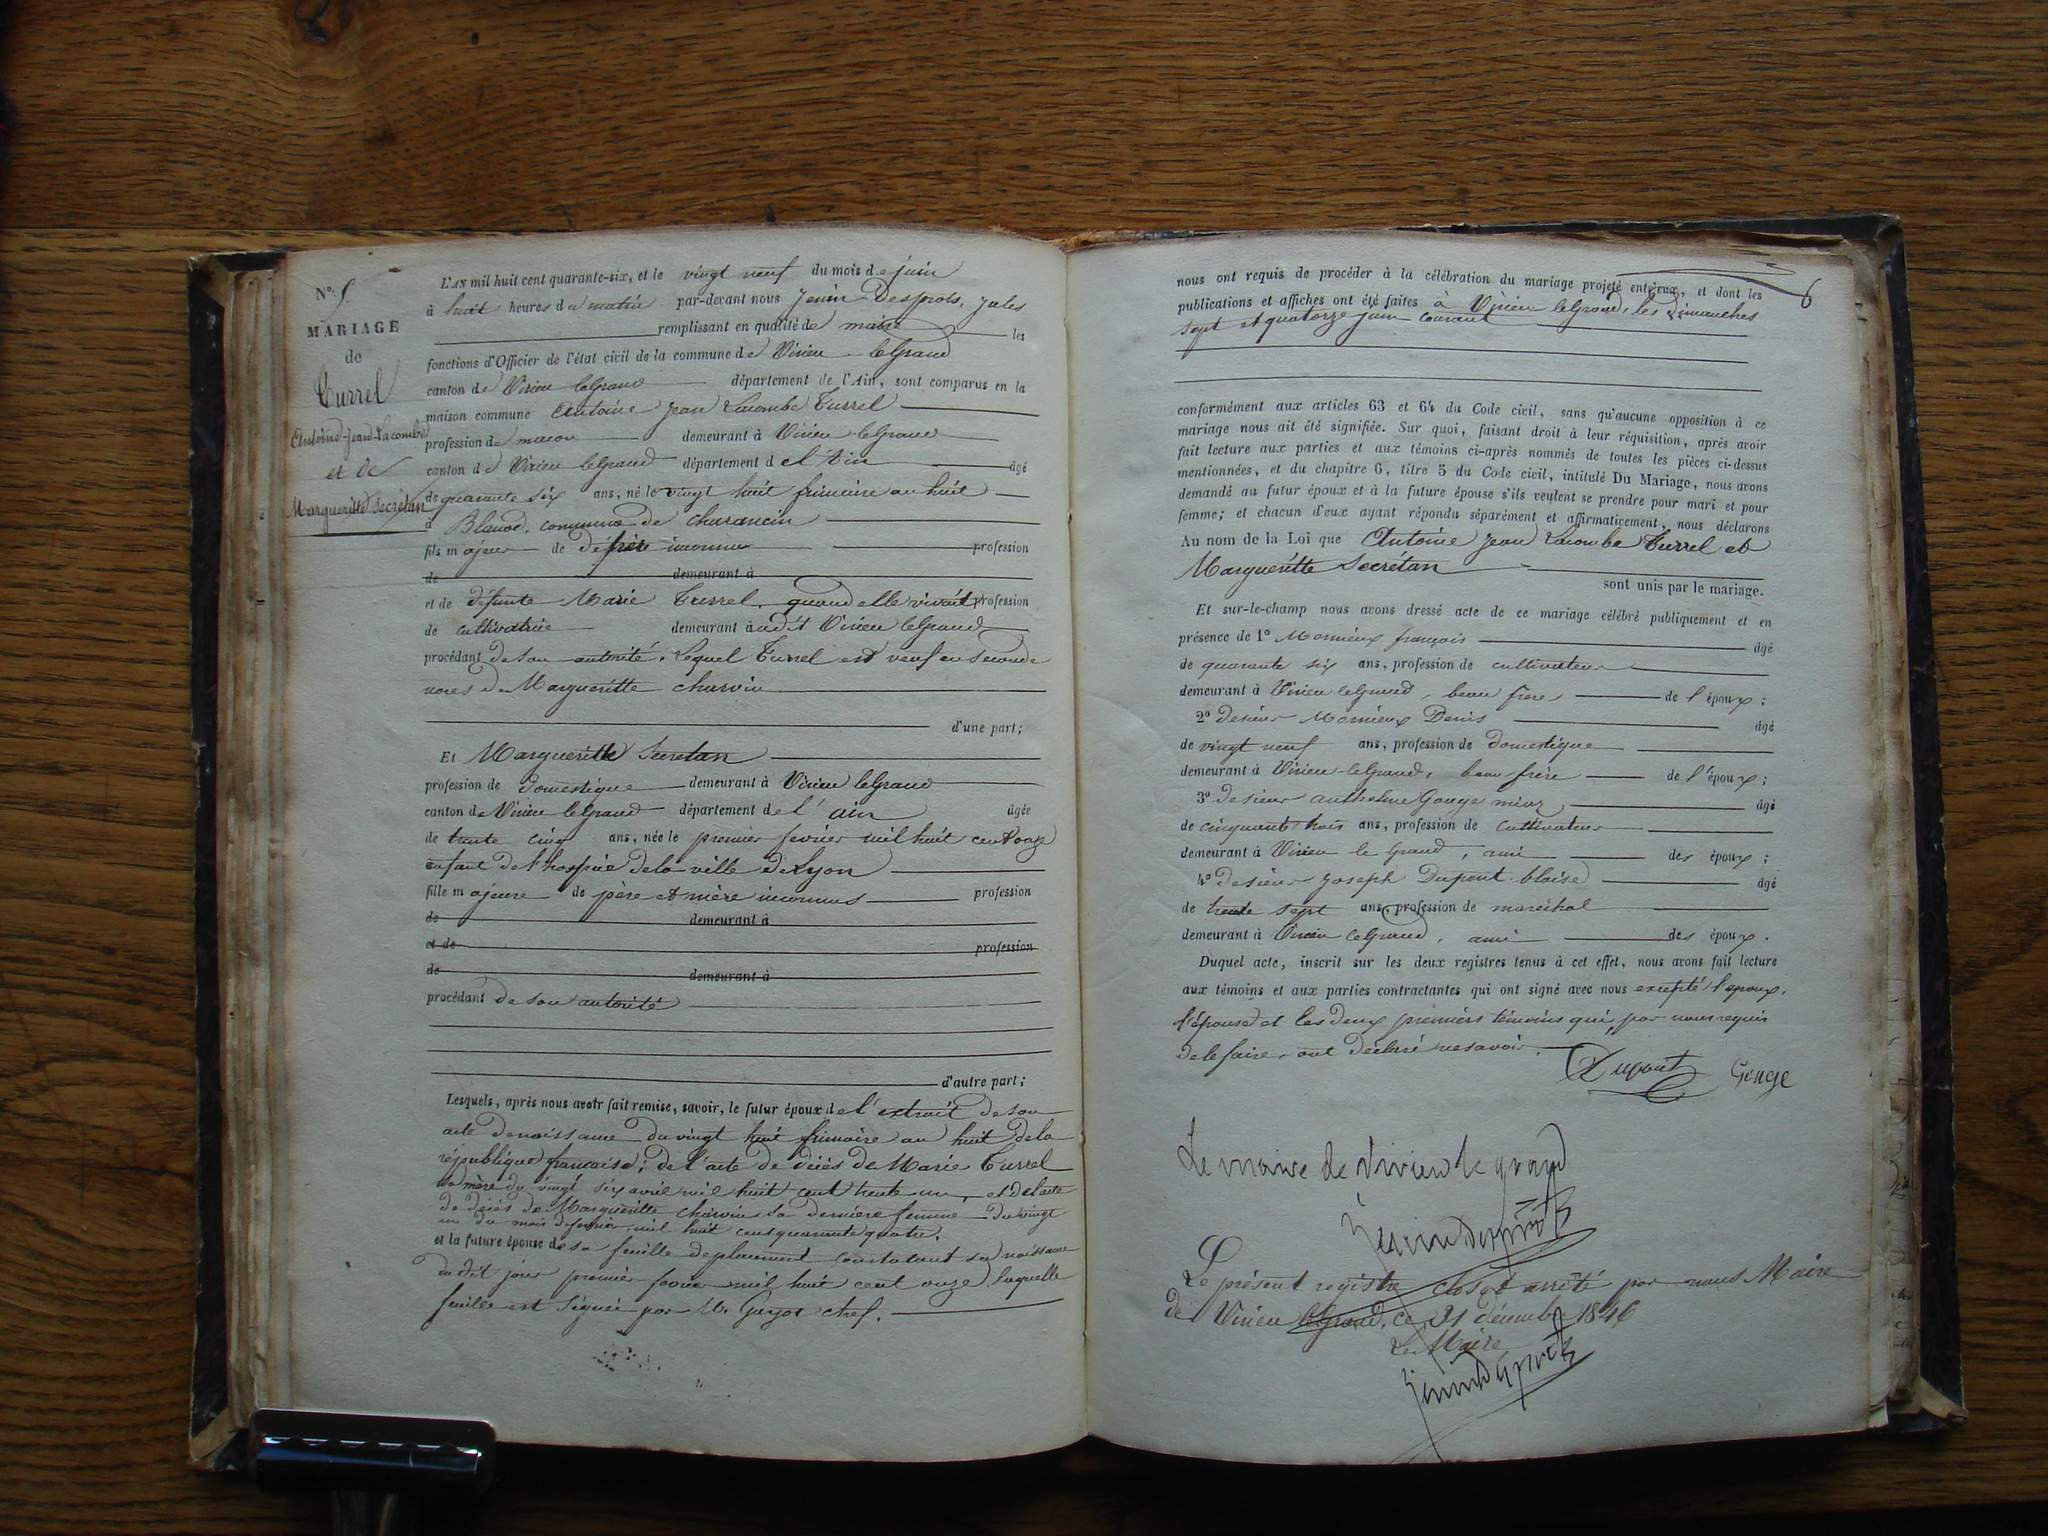 N° 5.
MARIAGE
de
Turrel
Antoine-Jean-Lacombe
et de
Margueritte Secrétan
L'AN mil huit cent quarante-six, et le vingt neuf du mois de juin
à huit heures du matin par-devant nous Jenin Desprots, Jules
remplissant en qualité de maire les
fonctions d'Officier de l'état civil de la commune de Virieu leGrand
canton de Virieu leGrand département de l'Ain, sont comparus en la
maison commune Antoine Jean Lacombe Turrel
profession de maçon demeurant à Virieu leGrand
canton de Virieu leGrand département de l'Ain âgé
de quarante six ans, né le vingt huit frimaire an huit
à commune de charancin
fils majeur de père inconnu profession
de demeurant à
et de défunte Marie Turrel, quand elle vivait profession
de cultivatrice demeurant audit Virieu leGrand
procédant de son autorité. Lequel Turrel est veuf en seconde
noces de Margueritte charvin
d'une part;
Et Margueritte Secretan
profession de domestique demeurant à Virieu leGrand
canton de Virieu leGrand département de l'ain âgée
de trente cinq ans, née le premier fevrier mil huit cent onze
enfant de l'hospice de la ville de Lyon
fille majeure de père et mère inconnus profession
de demeurant à
et de profession
de demeurant à
procédant de son autorité
d'autre part;
Lesquels, après nous avoir fait remise, savoir, le futur époux de l'extrait de son
acte de naissance du vingt huit frimaire an huit de la
république française; de l'acte de décès de Marie Turrel
sa mère du vingt six avril mil huit cent trente un, et de l'acte
de décès de Margueritte charvin sa dernière femme du vingt
un du mois de mil huit cent quarante quatre.
et la future épouse de sa feuille de placement constatant sa naissance
du dit jour premier fevrier mil huit cent onze laquelle
feuille est signée par Mr Guyot chef.
6
nous ont requis de procéder à la célébration du mariage projeté entr'eux, et dont les
publications et affiches ont été faites à Virieu leGrand, les dimanches
sept et quatorze juin courant
conformément aux articles 63 et 64 du Code civil, sans qu'aucune opposition à ce
mariage nous ait été signifiée. Sur quoi, faisant droit à leur réquisition, après avoir
fait lecture aux parties et aux témoins ci-après nommés de toutes les pièces ci-dessus
mentionnées, et du chapitre 6, titre 5 du Code civil, intitulé Du Mariage, nous avons
demandé au futur époux et à la future épouse s'ils veulent se prendre pour mari et pour
femme; et chacun d'eux ayant répondu séparément et affirmativement, nous déclarons
Au nom de la Loi que Antoine Jean Lacombe Turrel et
Margueritte Secrétan
sont unis par le mariage.
Et sur-le-champ nous avons dressé acte de ce mariage célébré publiquement et en
présence de 1° Monnieux françois âgé
de quarante six ans, profession de cultivateur
demeurant à Virieu leGrand, beau frere de l'époux;
2° de sieur Monnieux Denis âgé
de vingt neuf ans, profession de domestique
demeurant à Virieu leGrand, beau frère de l'époux;
3° de sieur anthelme Gouge âgé
de cinquante trois ans, profession de cultivateur
demeurant à Virieu le Grand, ami des époux;
4° de sieur Joseph Dupont blaise âgé
de trente sept ans, profession de maréchal
demeurant à Virieu leGrand, ami des époux.
Duquel acte, inscrit sur les deux registres tenus à cet effet, nous avons fait lecture
aux témoins et aux parties contractantes qui ont signé avec nous excepté l'époux,
l'épouse et les deux premiers témoins qui, par nous requis
de le faire, ont déclaré ne savoir.
Dupont Gouge
Le maire de Virieu le grand
Jenin Desprots
Le présent registre clos et arrêté par nous Maire
de Virieu leGrand, ce 31 décembre 1846
Le Maire
Jenin Desprots